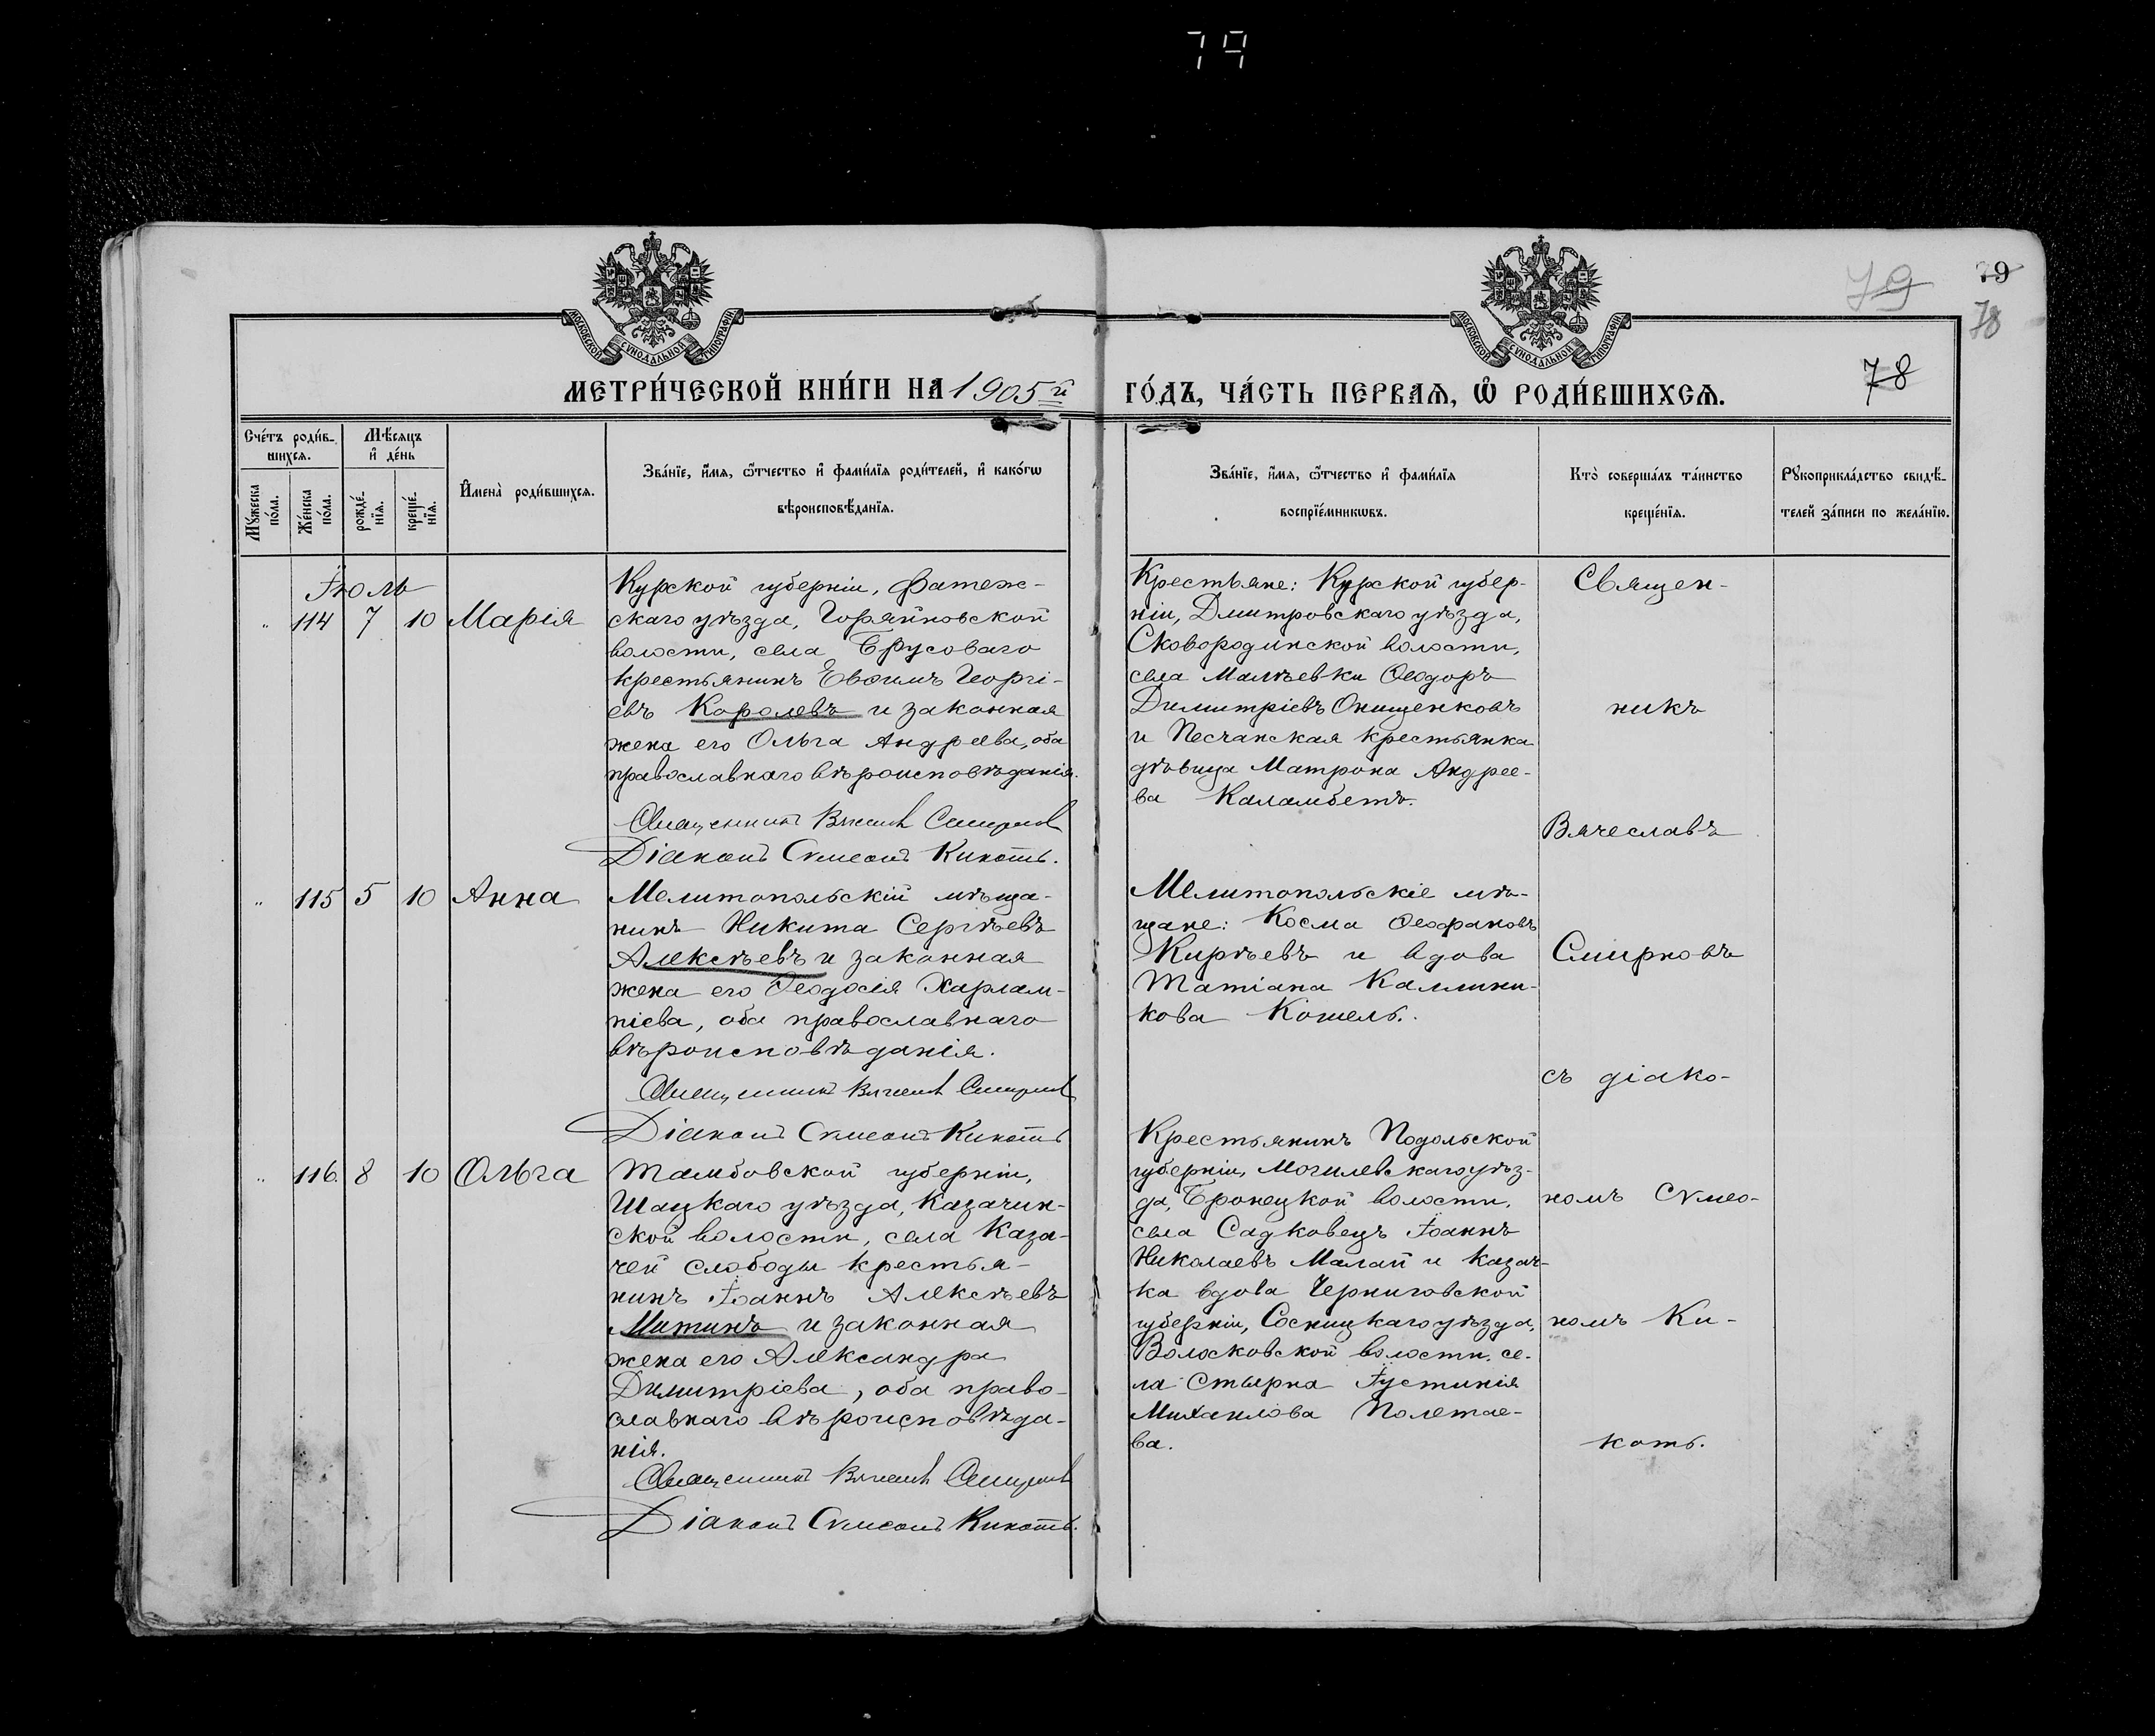 79
79
79
78
78
МОСКОВСКОЙ СѴНОДАЛЬНОЙ ТИПОГРАФІИ
МОСКОВСКОЙ СѴНОДАЛЬНОЙ ТИПОГРАФІИ
МЕТРИ́ЧЕСКОЙ КНИ́ГИ НА 1905й ГО́ДЪ, ЧА́СТЬ ПЕРВАѦ, Ѡ҆ РОДИ́ВШИХСѦ.
Сче́тъ роди́в-
шихсѧ.
Мѣ́сѧцъ
и҆ де́нь
Мꙋ́жеска
по́ла.
Же́нска
по́ла.
рожде́-
нїѧ.
креще́-
нїѧ.
И҆мена̀ роди́вшихсѧ.
Зва́нїе, и҆́мѧ, ѻ҆́тчество и҆ фами́лїѧ роди́телей, и҆ како́гѡ
вѣроисповѣ́данїѧ.
Зва́нїе, и҆́мѧ, ѻ҆́тчество и҆ фами́лїѧ
воспрїе́мникѡвъ.
Кто̀ соверша́лъ та́инство
креще́нїѧ.
Рꙋкоприкла́дство свидѣ́-
телей за́писи по жела́нїю.
Іюль
" 114 7 10 Марія
Курской губерніи, Фатеж-
скаго уѣзда, Горяйновской
волости, села Брусоваго
крестьянинъ Евѳимъ Георгі-
евъ Королевъ и законная
жена его Ольга Андреева, оба
православнаго вѣроисповѣданія.
Священникъ Вячеславъ Смирновъ
Діаконъ Сѵмеонъ Кикоть.
Крестьяне: Курской губер-
ніи, Дмитровскаго уѣзда,
Сковородинской волости,
села Малѣевки Ѳеодоръ
Димитріевъ Онищенковъ
и Песчанская крестьянка
дѣвица Матрона Андрее-
ва Каламбетъ.
Священ-
никъ
Вячеславъ
Смирновъ
съ діако-
номъ Сѵмео-
номъ Ки-
коть.
" 115 5 10 Анна
Мелитопольскій мѣща-
нинъ Никита Сергѣевъ
Алексѣевъ и законная
жена его Ѳеодосія Харлам-
піева, оба православнаго
вѣроисповѣданія.
Священникъ Вячеславъ Смирновъ
Діаконъ Сѵмеонъ Кикоть
Мелитопольскіе мѣ-
щане: Косма Ѳеофановъ
Кирѣевъ и вдова
Татіана Каллини-
кова Кошель.
" 116. 8 10 Ольга
Тамбовской губерніи,
Шацкаго уѣзда, Казачин-
ской волости, села Каза-
чей слободы крестья-
нинъ Іоаннъ Алексѣевъ
Митинъ и законная
жена его Александра
Димитріева, оба право-
славнаго вѣроисповѣда-
нія.
Священникъ Вячеславъ Смирновъ
Діаконъ Сѵмеонъ Кикоть.
Крестьянинъ Подольской
губерніи, Могилевскаго уѣз-
да, Бронецкой волости,
села Садковецъ Іоаннъ
Николаевъ Малай и казач-
ка вдова Черниговской
губерніи, Сосницкаго уѣзда,
Волосковской волости, се-
ла Стырна Іустинія
Михаилова Полетае-
ва.